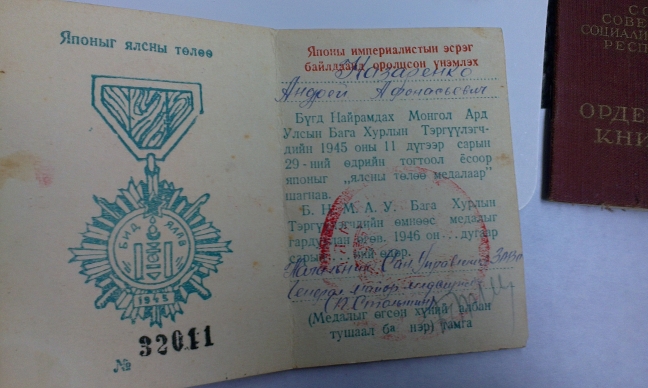 Японыг ялсны төлөө
БИД ЯЛАВ
1945
№ 32011
Японы империалистын эсрэг
байлдаанд оролцсон үнэмлэх
Казаченко
Андрей Афанасьевич
Бүгд Найрамдах Монгол Ард
Улсын Бага Хурлын Тэргүүлэгч-
дийн 1945 оны 11 дүгээр сарын
29-ний өдрийн тогтоол ёсоор
японыг „ялсны төлөө медалаар"
шагнав.
Б. Н. М. А. У. Бага Хурлын
Тэргүүлэгчдийн өмнөөс медалыг
гардуулан өгөв. 1946 он...дугаар
сарын ... ний өдөр.
Начальник Сан Управления
Генерал майор
(Медалыг өгсөн хүний албан
тушаал ба нэр) тамга
СО
СОВЕ
СОЦИАЛИ
РЕСП
ОРДЕ
КНИ